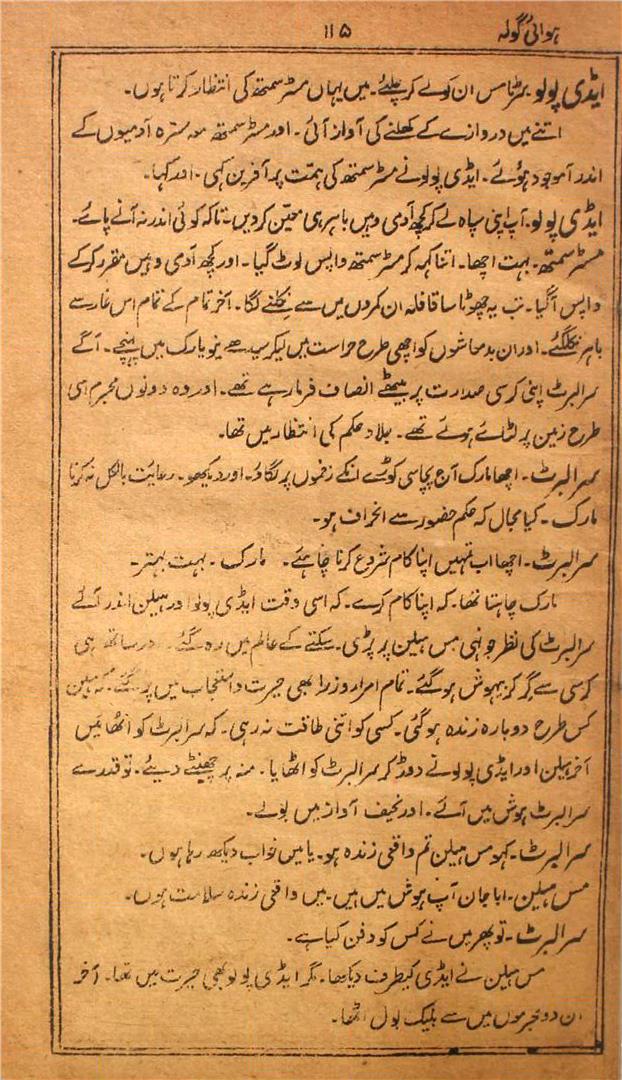 ہوائی گولہ ۱۱۵
ایڈی پولو۔ مسٹر ٹامس ان کو لے کر چلیئے۔ میں یہاں مسٹر سمتھ کی انتظار کرتا ہوں۔
اتنے میں دروازے کے کھلنے کی آواز آئی۔ اور مسٹر سمتھ معہ سترہ آدمیوں کے
اندر آموجود ہوئے۔ ایڈی پولو نے مسٹر سمتھ کی ہمت پر آفرین کہی۔ اور کہا۔
ایڈی پولو۔ آپ اپنی سپاہ لے کر کچھ آدمی وہیں باہر ہی معیّن کر دیں۔ تاکہ کوئی اندر نہ آنے پائے۔
مسٹر سمتھ۔ بہت اچھا۔ اتنا کہہ کر مسٹر سمتھ واپس لوٹ گیا۔ اور کچھ آدمی وہیں مقرر کر کے
واپس آگیا۔ تب یہ چھوٹا سا قافلہ ان کمروں میں سے نکلنے لگا۔ آخر تمام کے تمام اس غار سے
باہر نکل گئے۔ اور ان بدمعاشوں کو اچھی طرح حراست میں لیکر سیدھے نیویارک میں پہنچے۔ آگے
سر البرٹ اپنی کرسی صدارت پر بیٹھے انصاف فرما رہے تھے۔ اور وہ دونوں مجرم اسی
طرح زمین پر لٹائے ہوئے تھے۔ جلاد حکم کی انتظار میں تھا۔
سر البرٹ۔ اچھا مارک آج پچاسی کوڑے انکے زخموں پر لگاؤ۔ اور دیکھو۔ رعایت بالکل نہ کرنا
مارک۔ کیا مجال کہ حکم حضور سے انحراف ہو۔
سر البرٹ۔ اچھا اب تمہیں اپنا کام شروع کرنا چاہئے۔ مارک۔ بہت بہتر۔
مارک چاہتا تھا۔ کہ اپنا کام کرے۔ کہ اسی وقت ایڈی پولو اور ہیلن اندر آئے
سر البرٹ کی نظر جونہی مس ہیلن پر پڑی۔ سکتے کے عالم میں رہ گئے۔ اور ساتھ ہی
کرسی سے گر کر بیہوش ہو گئے۔ تمام امرا و وزرا بھی حیرت و استعجاب میں پڑ گئے۔ کہ ہیلن
کس طرح دوبارہ زندہ ہو گئی۔ کسی کو اتنی طاقت نہ رہی۔ کہ سر البرٹ کو اٹھائیں
آخر ہیلن اور ایڈی پولو نے دوڑ کر سر البرٹ کو اٹھایا۔ منہ پر چھینٹے دیئے۔ تو قدرے
سر البرٹ ہوش میں آئے۔ اور نحیف آواز میں بولے۔
سر البرٹ۔ کہو مس ہیلن تم واقعی زندہ ہو۔ یا میں خواب دیکھ رہا ہوں۔
مس ہیلن۔ ابا جان آپ ہوش میں ہیں۔ میں واقعی زندہ سلامت ہوں۔
سر البرٹ۔ تو پھر میں نے کس کو دفن کیا ہے۔
مس ہیلن نے ایڈی کیطرف دیکھا۔ مگر ایڈی پولو بھی حیرت میں تھا۔ آخر
ان دو مجرموں میں سے بلیک بول اٹھا۔